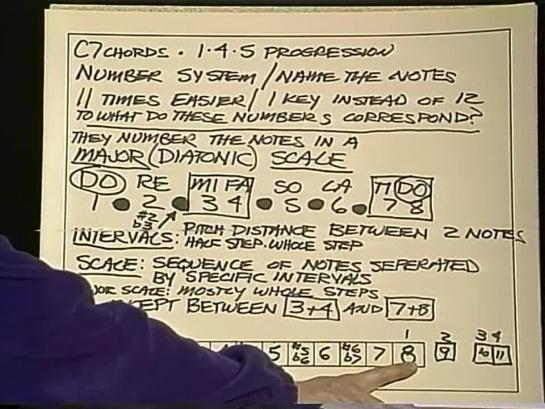 C7 CHORDS · 1·4·5 PROGRESSION
NUMBER SYSTEM / NAME THE NOTES
11 TIMES EASIER / 1 KEY INSTEAD OF 12
TO WHAT DO THESE NUMBERS CORRESPOND?
THEY NUMBER THE NOTES IN A
MAJOR (DIATONIC) SCALE
DO RE MI FA SO LA TI DO
1 • 2 • 3 4 • 5 • 6 • 7 8
#2
b3
INTERVALS: PITCH DISTANCE BETWEEN 2 NOTES
HALF STEP-WHOLE STEP
SCALE: SEQUENCE OF NOTES SEPERATED
BY SPECIFIC INTERVALS
SCALE: MOSTLY WHOLE STEPS
BETWEEN 3+4 AND 7+8
1 2 3 4
5 #5 b6 6 #6 b7 7 8 9 10 11